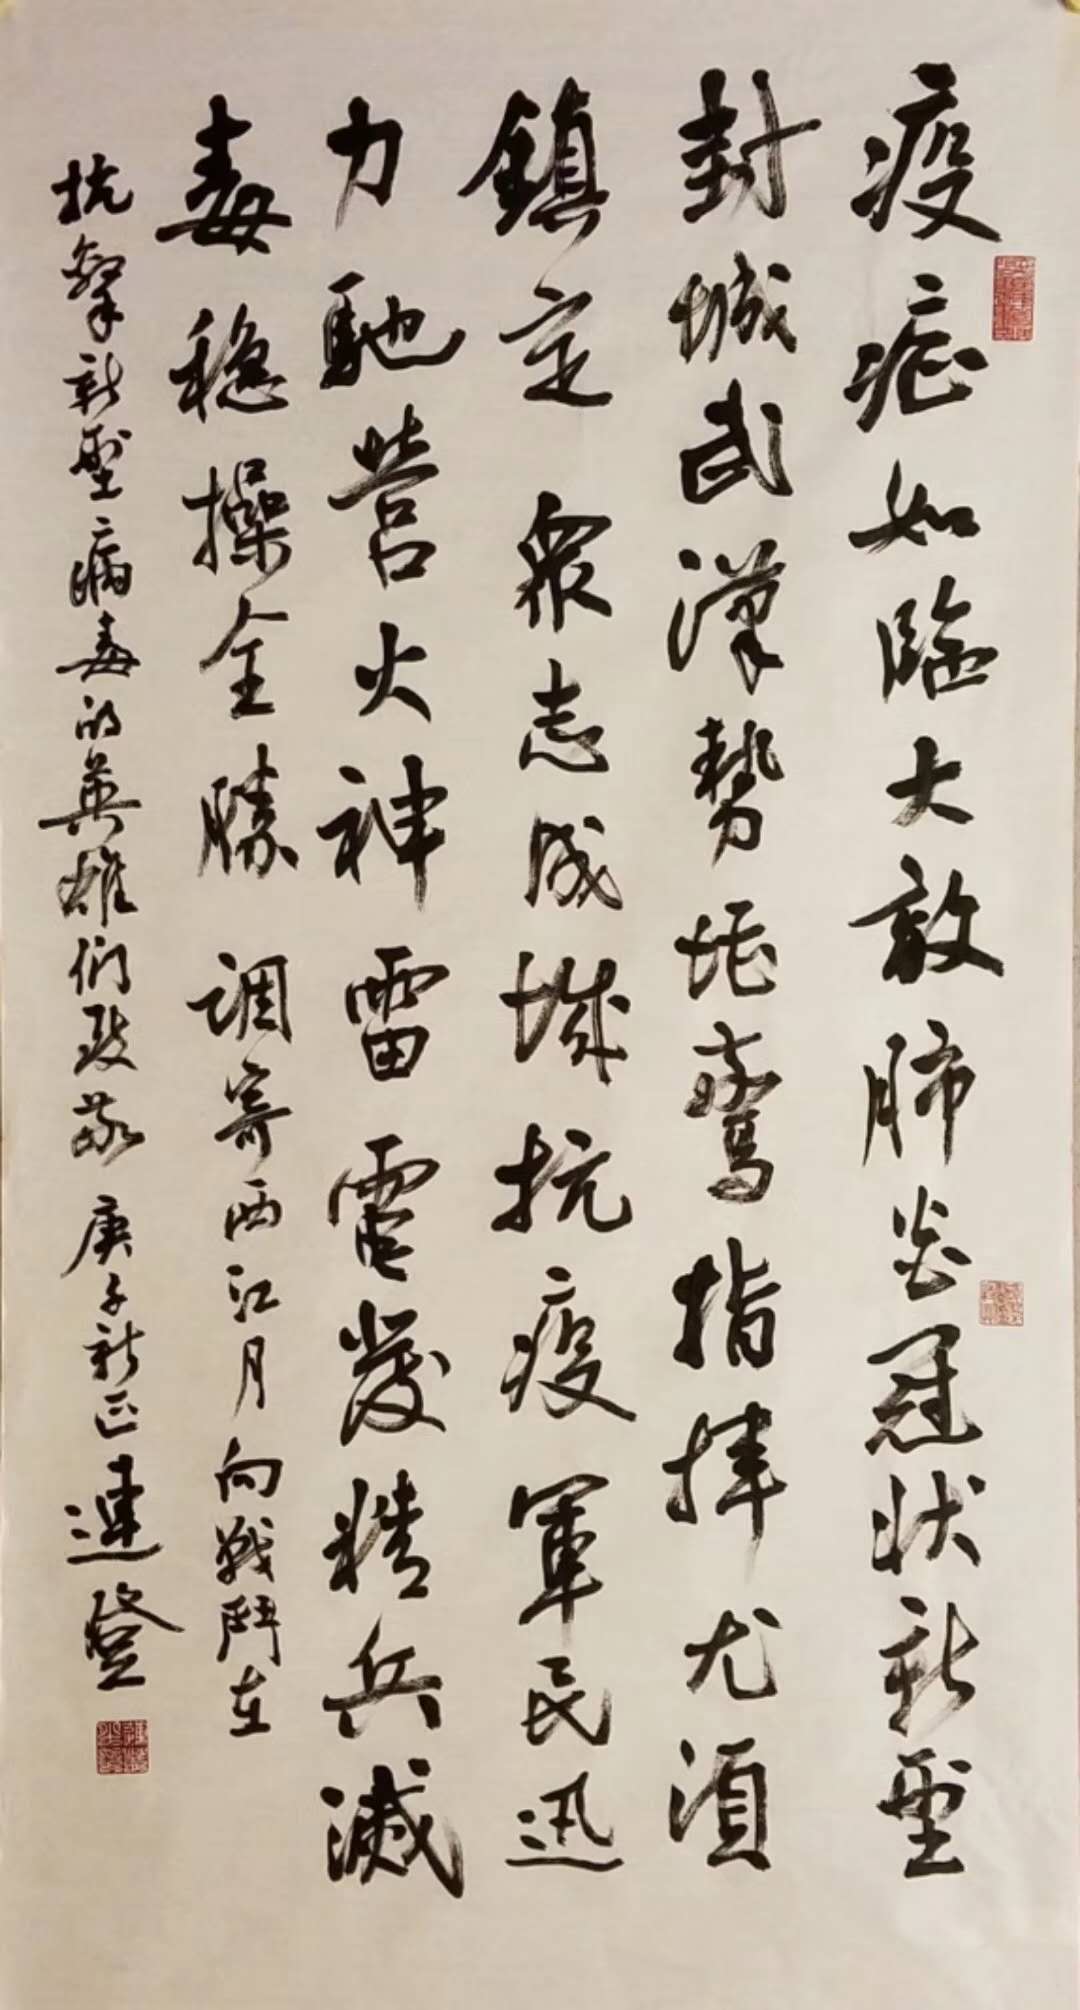 疫症如臨大敵肺炎冠狀新型
封城武漢勢堪驚指揮尤須
鎮定 衆志成城抗疫軍民迅
力馳營火神雷電發精兵滅
毒穩操全勝 調寄西江月向戰鬥在
抗擊新型病毒的英雄們致敬 庚子新正連登